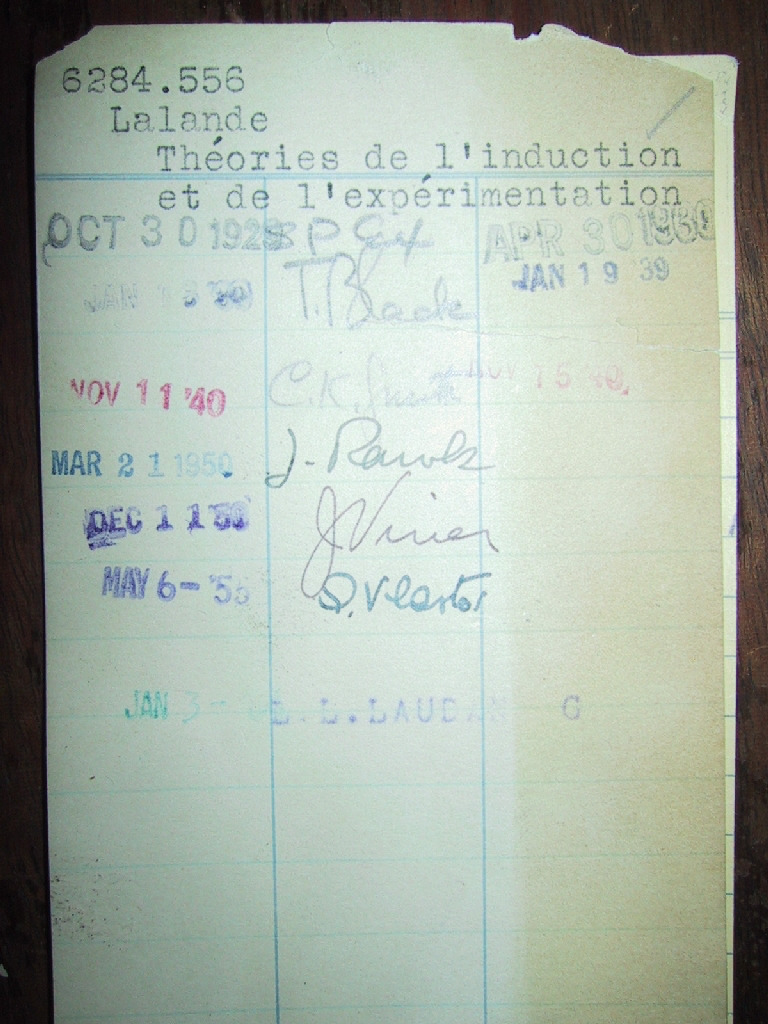 6284.556
Lalande
Théories de l'induction
et de l'expérimentation
OCT 30 1929 APR 30 1930
JAN 19 39
T. Black
NOV 11 '40 C.K. Smith NOV 15 '40
MAR 21 1950 J. Rawls
DEC 11 '50 J Viner
MAY 6- '55 G. Vlastos
JAN 3- L.L.LAUDAN G